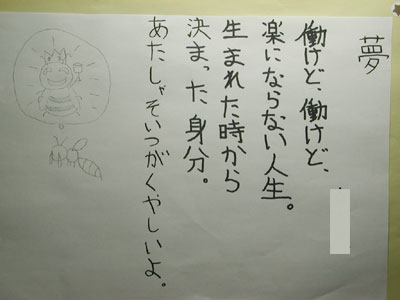 夢
働けど、働けど、
楽にならない人生。
生まれた時から
決まった身分。
あたしゃそいつがくやしいよ。